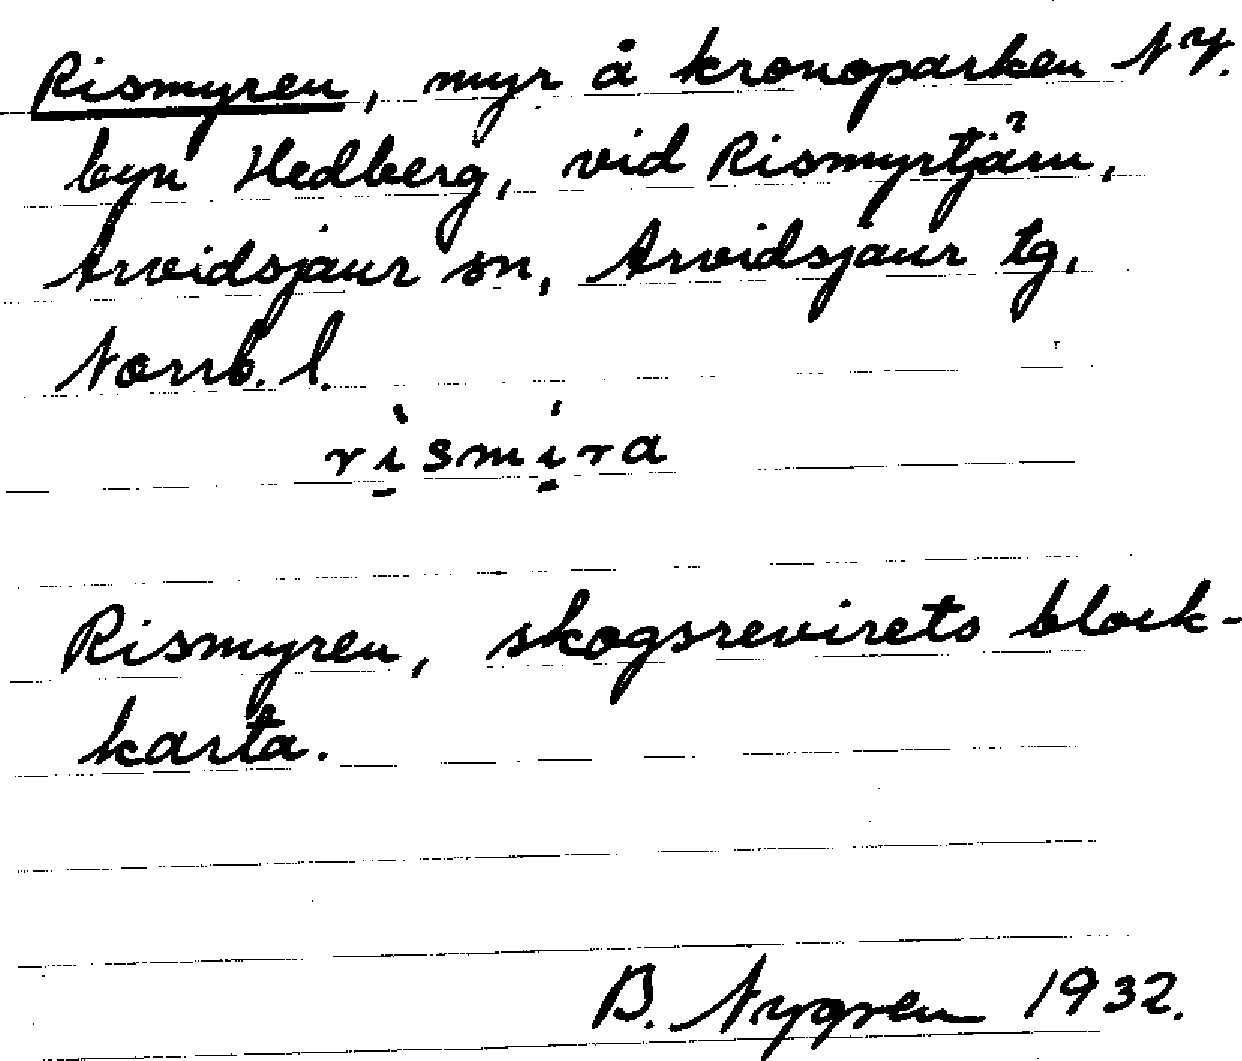 Rismyren, myr å kronoparken NV.
byn Hedberg, vid Rismyrtjärn,
Arvidsjaur sn, Arvidsjaur tg,
Norrb. l.
rìsmíra
Rismyren, skogsrevirets block-
karta.
B. Nygren 1932.